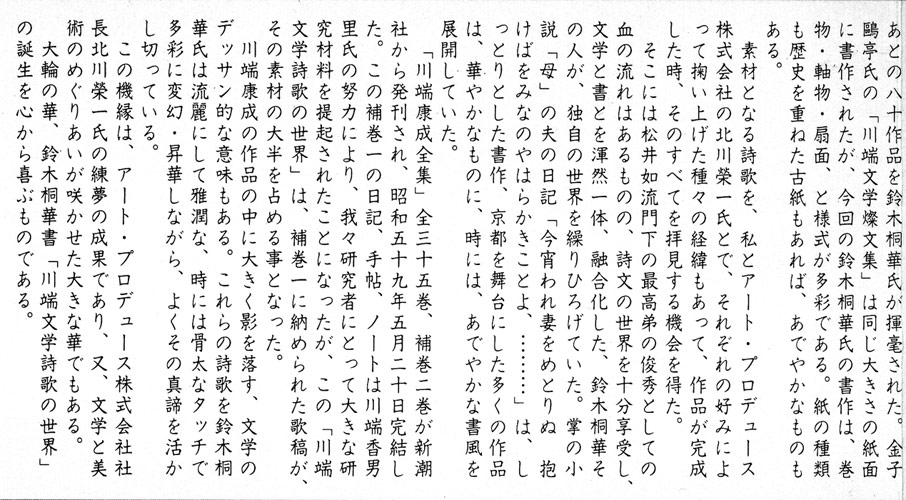 あとの八十作品を鈴木桐華氏が揮毫された。金子
鷗亭氏の「川端文学燦文集」は同じ大きさの紙面
に書作されたが、今回の鈴木桐華氏の書作は、巻
物・軸物・扇面、と様式が多彩である。紙の種類
も歴史を重ねた古紙もあれば、あでやかなものも
ある。
素材となる詩歌を、私とアート・プロデュース
株式会社の北川榮一氏とで、それぞれの好みによ
って掬い上げた種々の経緯もあって、作品が完成
した時、そのすべてを拝見する機会を得た。
そこには松井如流門下の最高弟の俊秀としての
血の流れはあるものの、詩文の世界を十分享受し、
文学と書とを渾然一体、融合化した、鈴木桐華そ
の人が、独自の世界を繰りひろげていた。掌の小
説「母」の夫の日記「今宵われ妻をめとりぬ 抱
けばをみなのやはらかきことよ、………」は、し
っとりとした書作、京都を舞台にした多くの作品
は、華やかなものに、時には、あでやかな書風を
展開していた。
「川端康成全集」全三十五巻、補巻二巻が新潮
社から発刊され、昭和五十九年五月二十日完結し
た。この補巻一の日記、手帖、ノートは川端香男
里氏の努力により、我々研究者にとって大きな研
究材料を提起されたことになったが、この「川端
文学詩歌の世界」は、補巻一に納められた歌稿が、
その素材の大半を占める事となった。
川端康成の作品の中に大きく影を落す、文学の
デッサン的な意味もある。これらの詩歌を鈴木桐
華氏は流麗にして雅潤な、時には骨太なタッチで
多彩に変幻・昇華しながら、よくその真諦を活か
し切っている。
この機縁は、アート・プロデュース株式会社社
長北川榮一氏の練夢の成果であり、又、文学と美
術のめぐりあいが咲かせた大きな華でもある。
大輪の華、鈴木桐華書「川端文学詩歌の世界」
の誕生を心から喜ぶものである。